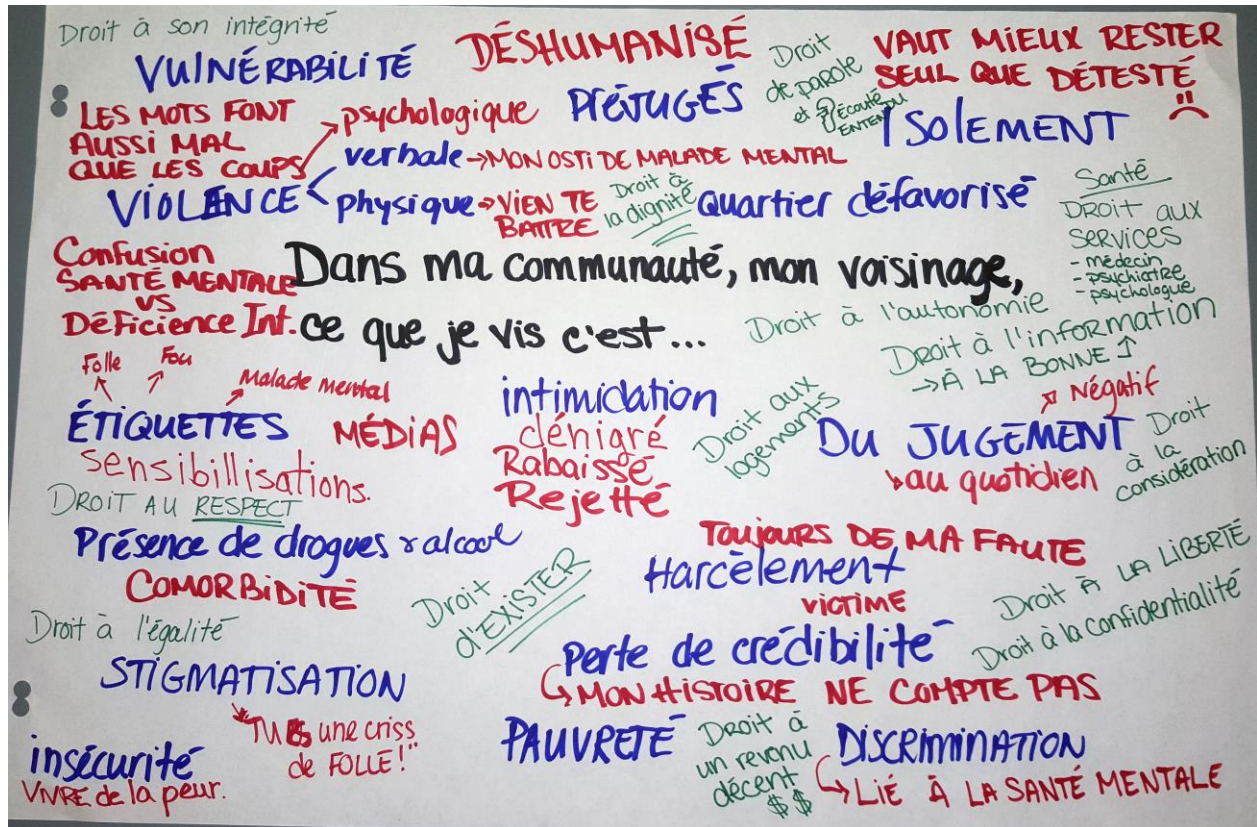 Droit à son intégrité
VULNÉRABILITÉ
DÉSHUMANISÉ
Droit
de parole
et écouté
ENTENDU
VAUT MIEUX RESTER
SEUL QUE DÉTESTÉ
LES MOTS FONT
AUSSI MAL
QUE LES COUPS
psychologique
PRÉJUGÉS
ISOLEMENT
verbale → MON OSTI DE MALADE MENTAL
VIOLENCE
physique → VIEN TE
BATTRE
Droit à
la dignité
Quartier défavorisé
Santé
DROIT AUX
SERVICES
- médecin
- psychiatre
- psychologue
Confusion
SANTÉ MENTALE
VS
Déficience Int.
Dans ma communauté, mon voisinage,
ce que je vis c'est...
Droit à l'autonomie
Droit à l'information
→ À LA BONNE
Folle
Fou
Malade mental
ÉTIQUETTES
MÉDIAS
sensibillisations.
intimidation
dénigré
Rabaissé
Rejetté
Droit aux
logements
Négatif
DU JUGEMENT
au quotidien
Droit
à la
considération
DROIT AU RESPECT
Présence de drogues & alcool
COMORBIDITÉ
Droit
d'EXISTER
TOUJOURS DE MA FAUTE
Harcèlement
VICTIME
Droit À LA LIBERTÉ
Droit à la confidentialité
Droit à l'égalité
STIGMATISATION
"TU ES une criss
de FOLLE!"
Perte de crédibilité
MON HISTOIRE NE COMPTE PAS
insécurité
VIVRE de la peur.
PAUVRETÉ
Droit à
un revenu
décent
$$
DISCRIMINATION
LIÉ À LA SANTÉ MENTALE